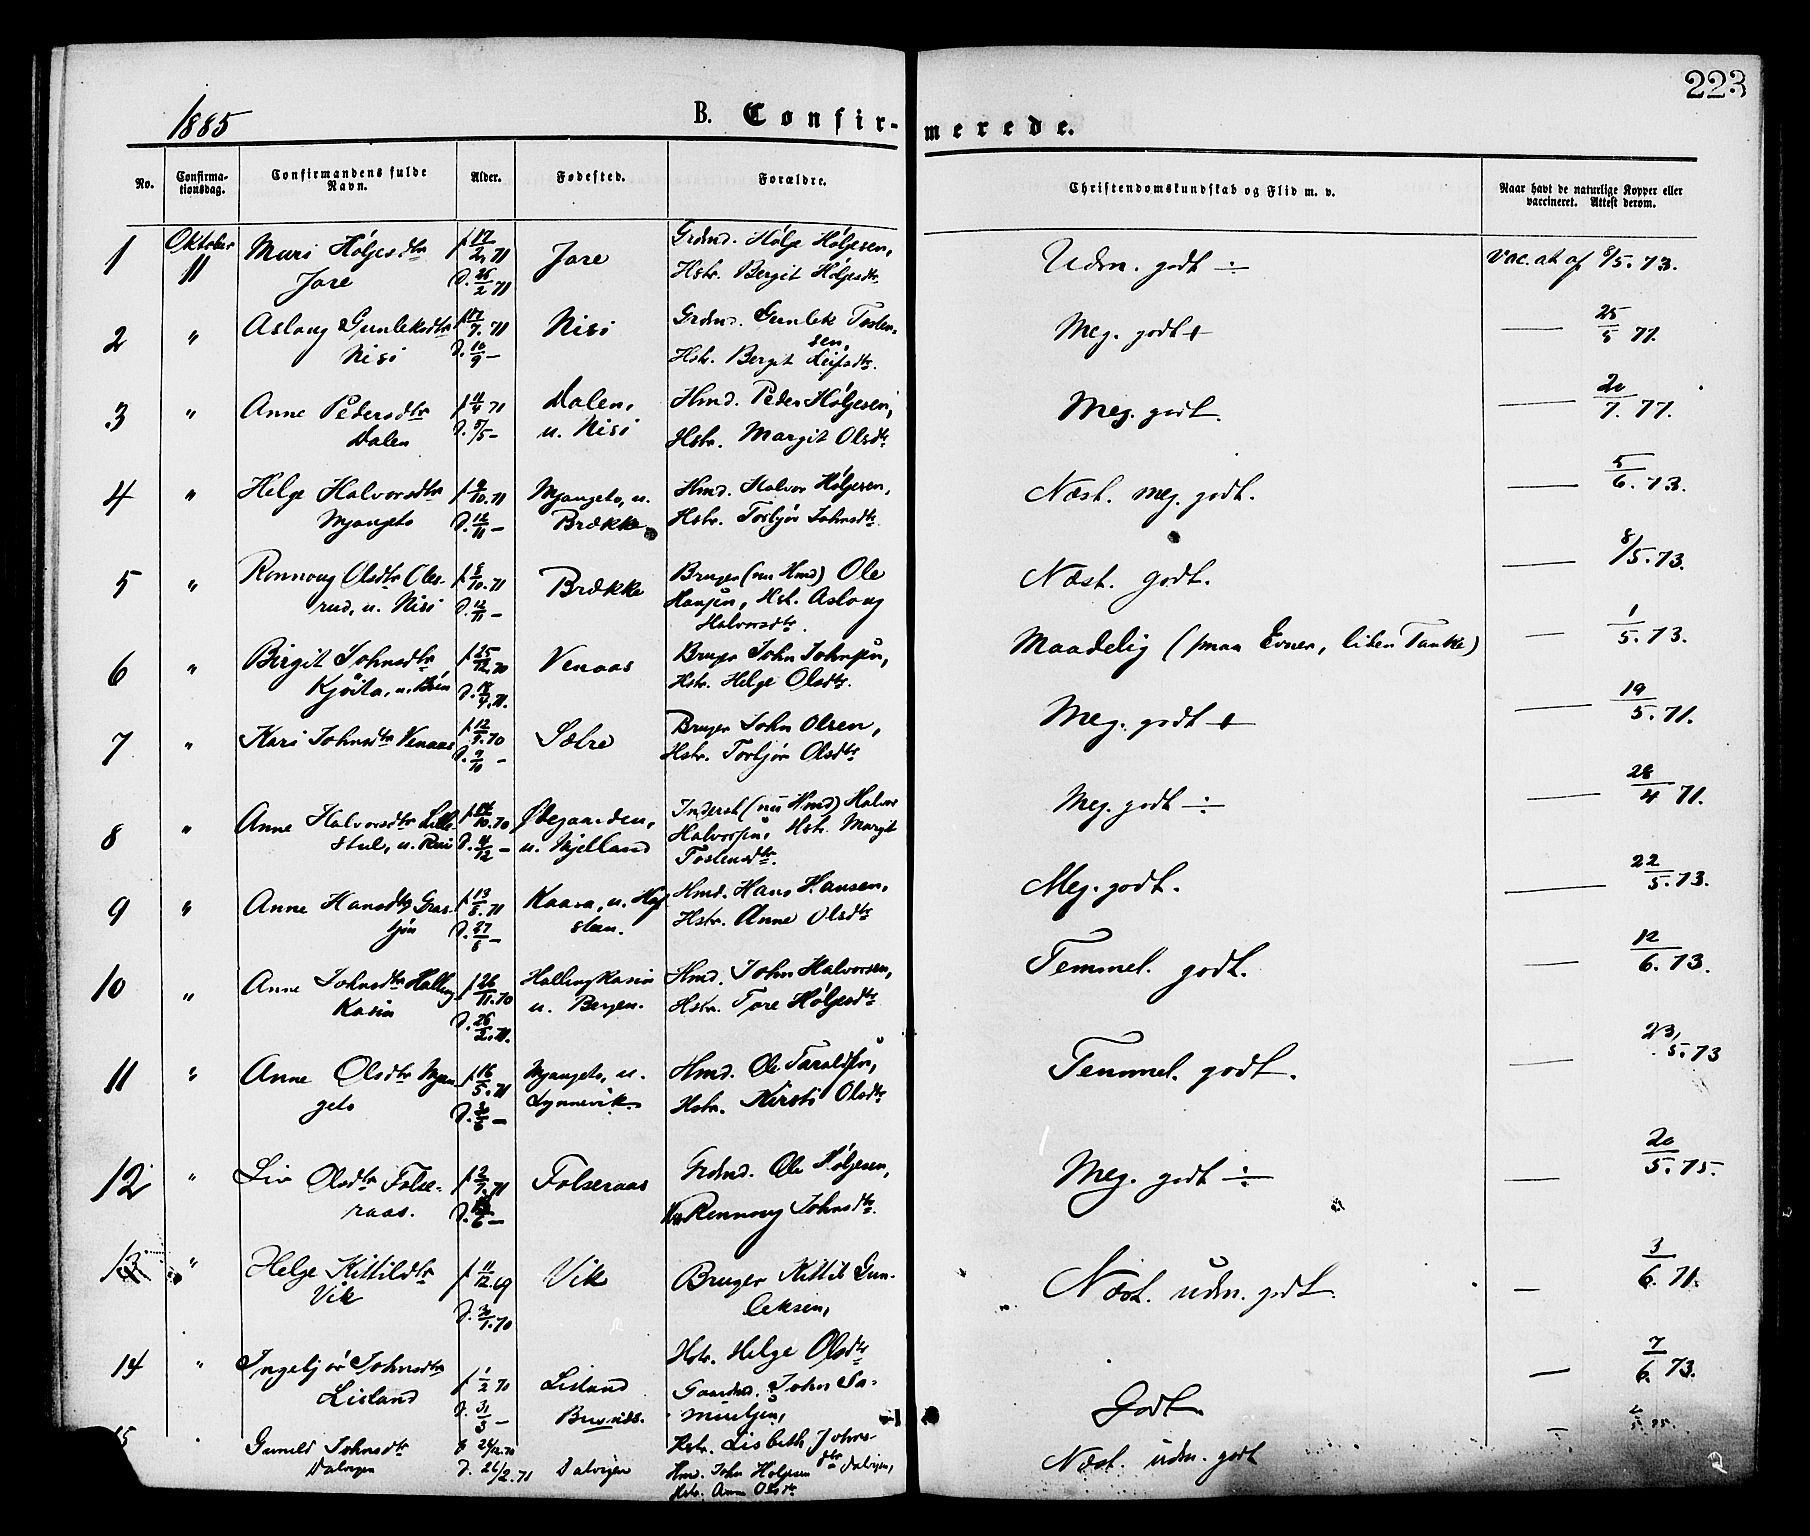 223
1885
B. Confirmerede.
No.
Confirmationsdag.
Confirmandens fulde Navn.
Alder.
Fødested.
Forældre.
Christendomskundskab og Flid m. v.
Naar havt de naturlige Kopper eller vaccineret. Attest derom.
1 Oktober Mari Höljesdtr f. 17/2. 71 Jore Grdmd. Hölje Höljesen, Udm. godt ÷ Vac. at af 8/5. 73.
11 Jore D. 26/2 71 Hstr. Bergit Höljesdtr.
2 " Aslaug Gunleksdtr f. 17/7. 71 Nisi Grdmd. Gunlek Tosten- Meg. godt + — 25/5 71.
Nisi D. 10/9 — sen,
Hstr. Bergit Leifsdtr.
3 " Anne Pedersdtr f. 11/4 71 Dalen, Hmd. Peder Höljesen, Meg. godt. — 20/7. 77.
Dalen D. 5/5 — u. Nisi Hstr. Margit Olsdtr
4 " Helge Halvorsdtr f. 9/10. 71 Mjaugeto, u. Hmd. Halvor Höljesen, Næst. meg. godt. — 5/6. 73.
Mjaugeto D. 12/11 — Brække Hstr. Torbjör Johnsdtr.
5 " Rønnoug Olsdtr Ols- f. 8/10. 71 Brække Bruger (nu Hmd) Ole Næst. godt. — 8/5. 73.
rud, u. Nisi D. 12/11 — Hansen, Hst. Aslaug
Halvorsdtr.
6 " Birgit Johnsdtr f. 25/12. 70 Venaas Bruger John Johnsen, Maadelig (smaa Evner, liden Tanke) — 1/5. 73.
Kjöita, u. Böen Hstr. Helge Olsdtr.
7 " Kari Johnsdtr Venaas f. 12/9. 70 Sælre Bruger John Olsen, Meg. godt + — 19/5. 71.
D. 9/10 — Hstr. Torbjör Olsdtr
8 " Anne Halvorsdtr Lille- Ødegaarden, Inderst (nu Hmd) Halvor Meg. godt ÷ — 28/4 71.
stul, u. D. 11/12 — u. Mjelland Halvorsen, Hstr. Margit
Tostensdtr.
9 " Anne Hansdtr Gras- f. 13/8. 71 Kaasa, u. Hmd. Hans Hansen, Meg. godt. — 22/5. 73.
tjön D. 27/8 — steen. Hstr. Anne Olsdtr
10 " Anne Johnsdtr Halling f. 26/11. 70 Hallingkasin Hmd. John Halvorsen, Temmel. godt. — 12/6. 73.
Kasin D. 26/2. 71. u. Bergen. Hstr. Tore Höljesdtr
11 " Anne Olsdtr Mjau- f. 16/5. 71 Mjaugeto, u. Hmd. Ole Taraldsen, Temmel. godt. — 23/5. 73
geto Lynnevik. Hstr. Kirsti Olsdtr
12 " Liv Olsdtr Folse- f. 2/7. 71 Folseraas Grdmd. Ole Höljesen, Meg. godt ÷ — 20/5. 75.
raas. Rønnoug Johnsdtr.
13 " Helge Kittildtr f. 11/12. 69 Vik Bruger Kittil Gun- Næst. udm. godt. — 3/6. 71.
Vik D. 30/1. 70 leksen,
Hstr. Helge Olsdtr
14 " Ingebjör Johnsdtr f. 1/2 70 Lisland Gaardmd. John Sa- Godt — 7/6. 73.
Lisland D. 31/3 — muelsen,
Hstr. Lisbeth Johns-
dtr
15 Gunild Johnsdtr f 24/12. 70 Dalvigen Hmd. John Holjesen Dalvigen, Næst. udm. godt —
Dalvigen D. 26/2. 71 Hstr. Anne Olsdtr